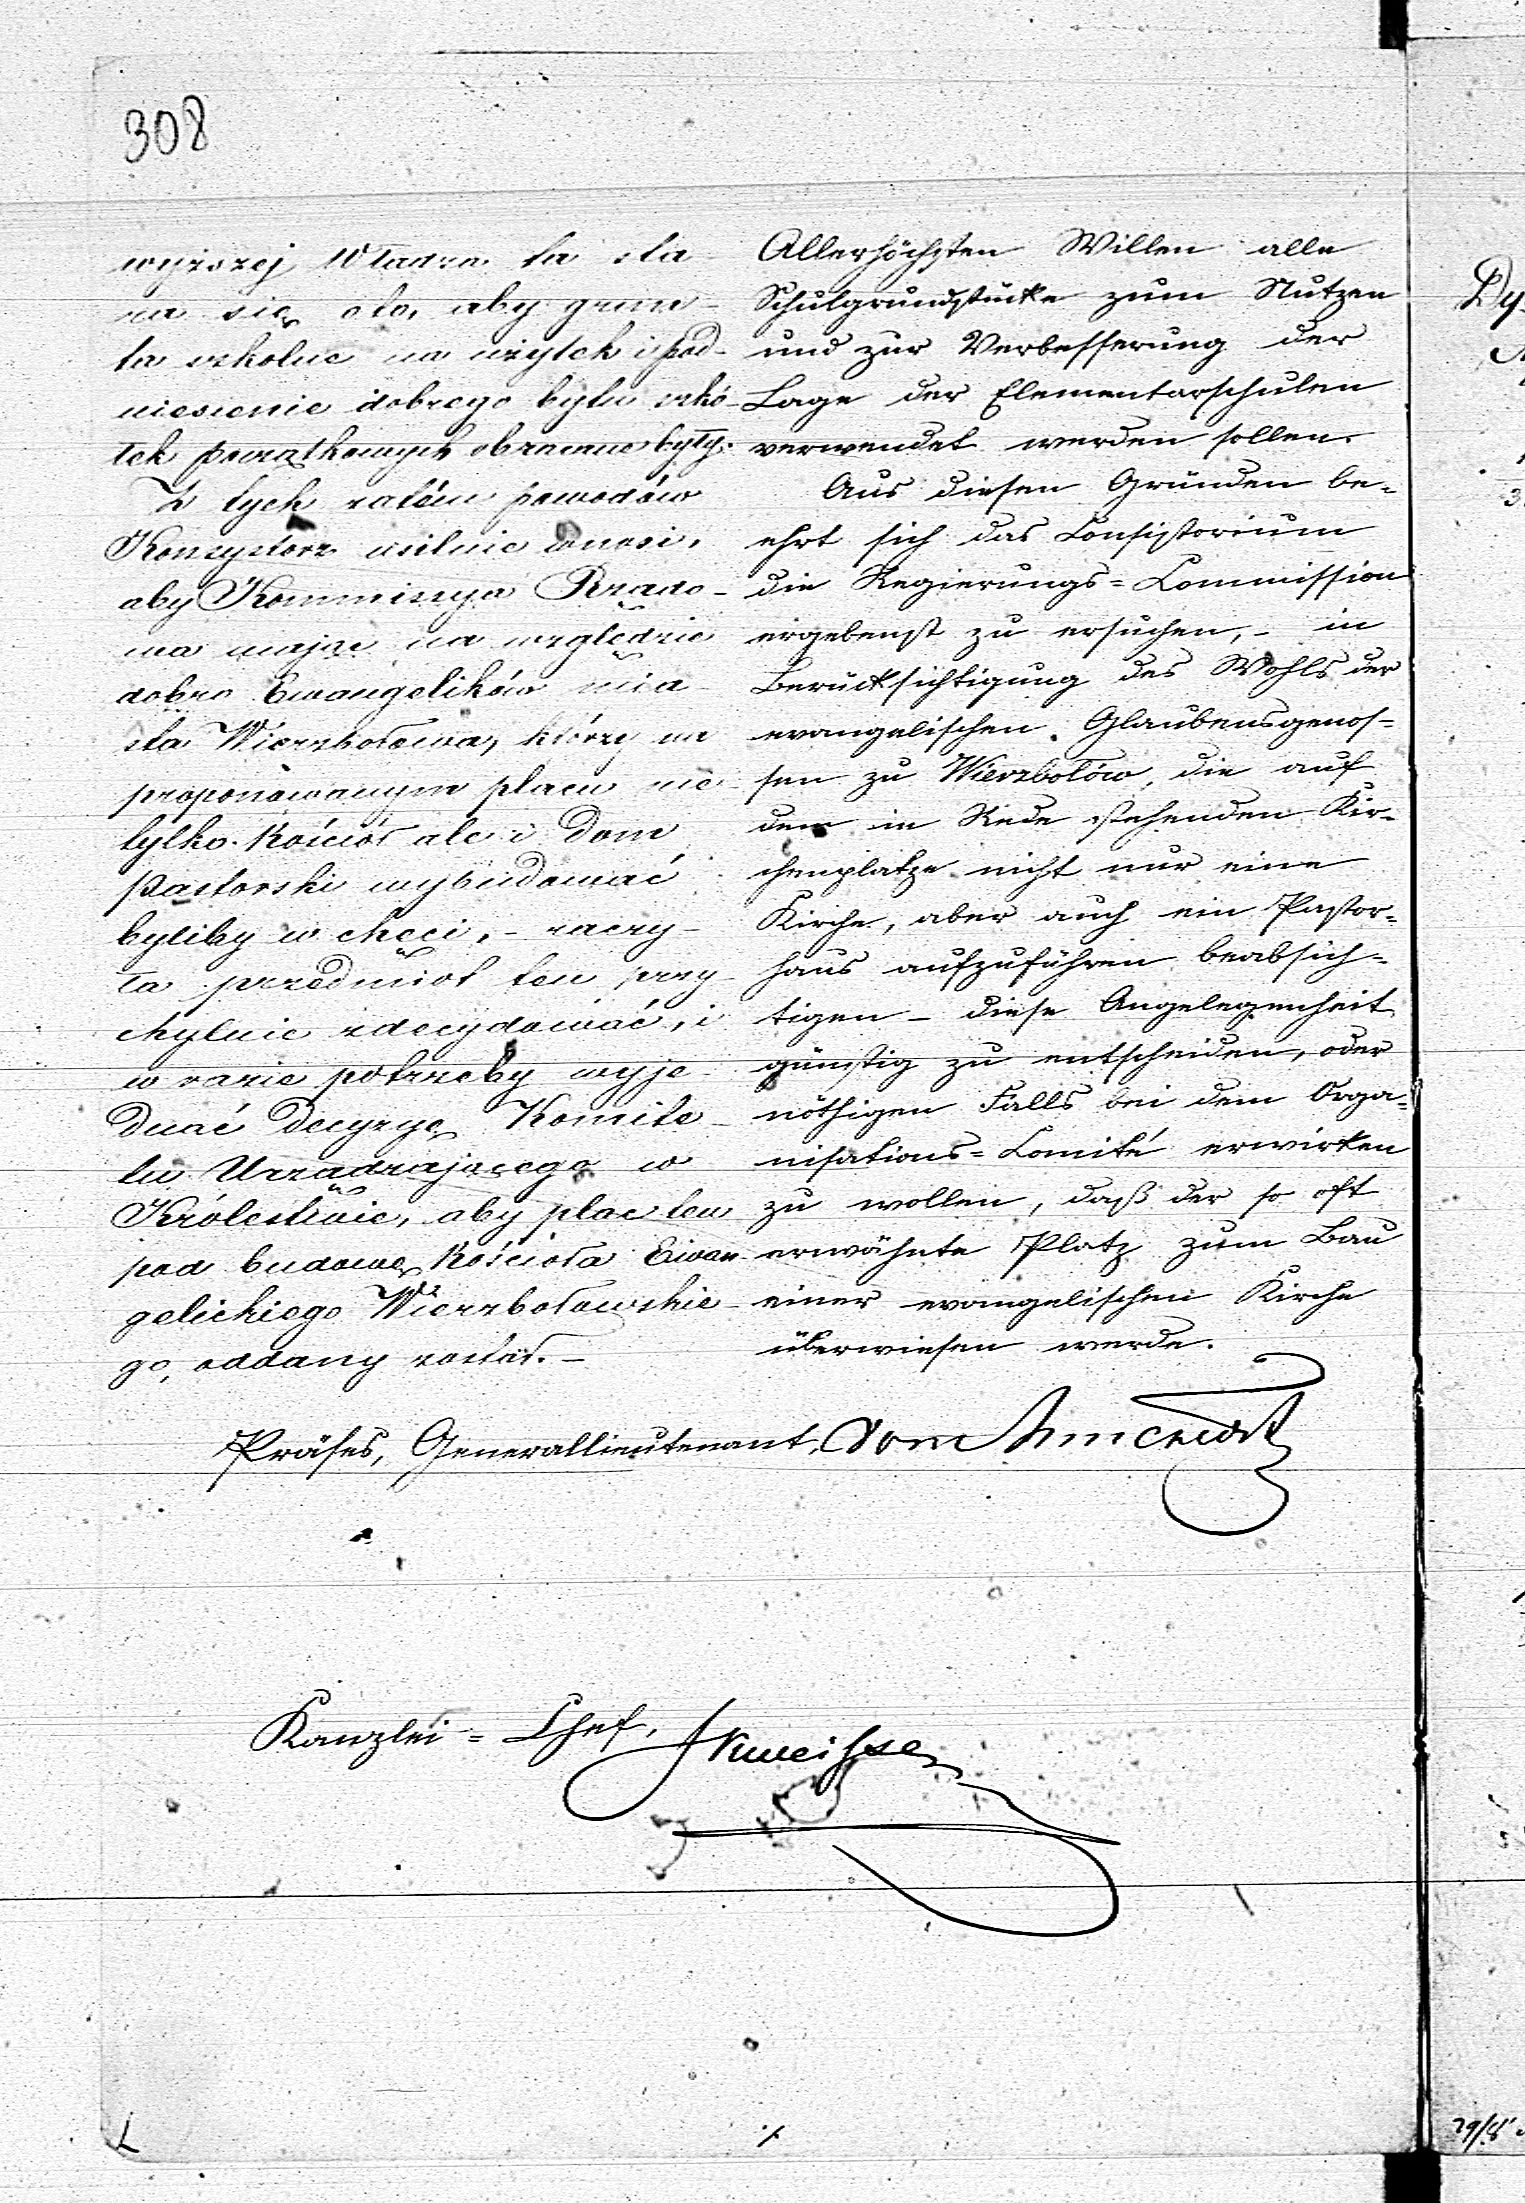 308
wyższej Władza ta sta-
ra się o to, aby grun-
ta szkolne na użytek i pod-
niesienie dobrego bytu szkó-
łek początkowych obracane były.
Z tych zatém powodów
Konsystorz usilnie wnosi,
aby Kommissya Rządo-
wa mając na względzie
dobro Ewangelików mia-
sta Wierzbołowa, którzy na
proponowanym placu nie
tylko kościół ale i Dom
Pastorski wybudować
byliby w chęci, - raczy-
ła przedmiot ten przy-
chylnie zdecydować, i
w razie potrzeby wyje-
dnać Decyzyę Komite-
tu Urządzającego w
Królestwie, aby plac ten
pod budowę Kościoła Ewan-
gelickiego Wierzbołowskie-
go, oddany został. -
Allerhöchsten Willen alle
Schulgrundstücke zum Nutzen
und zur Verbesserung der
Lage der Elementarschulen
verwendet werden sollen.
Aus diesen Gründen be-
ehrt sich das Consistorium
die Regierungs=Commission
ergebenst zu ersuchen, - in
Berücksichtigung des Wohls der
evangelischen Glaubensgenos=
sen zu Wierzbołów, die auf
dem in Rede stehenden Kir=
chenplatze nicht nur eine
Kirche, aber auch ein Pastor=
haus aufzuführen beabsich=
tigen - diese Angelegenheit
günstig zu entscheiden, oder
nöthigen Falls bei dem Orga=
nisations=Comité erwirken
zu wollen, daß der so oft
erwähnte Platz zum Bau
einer evangelischen Kirche
überwiesen werde.
Präses, Generallieutenant,
Kanzlei=Chef,
Dy-
29/8